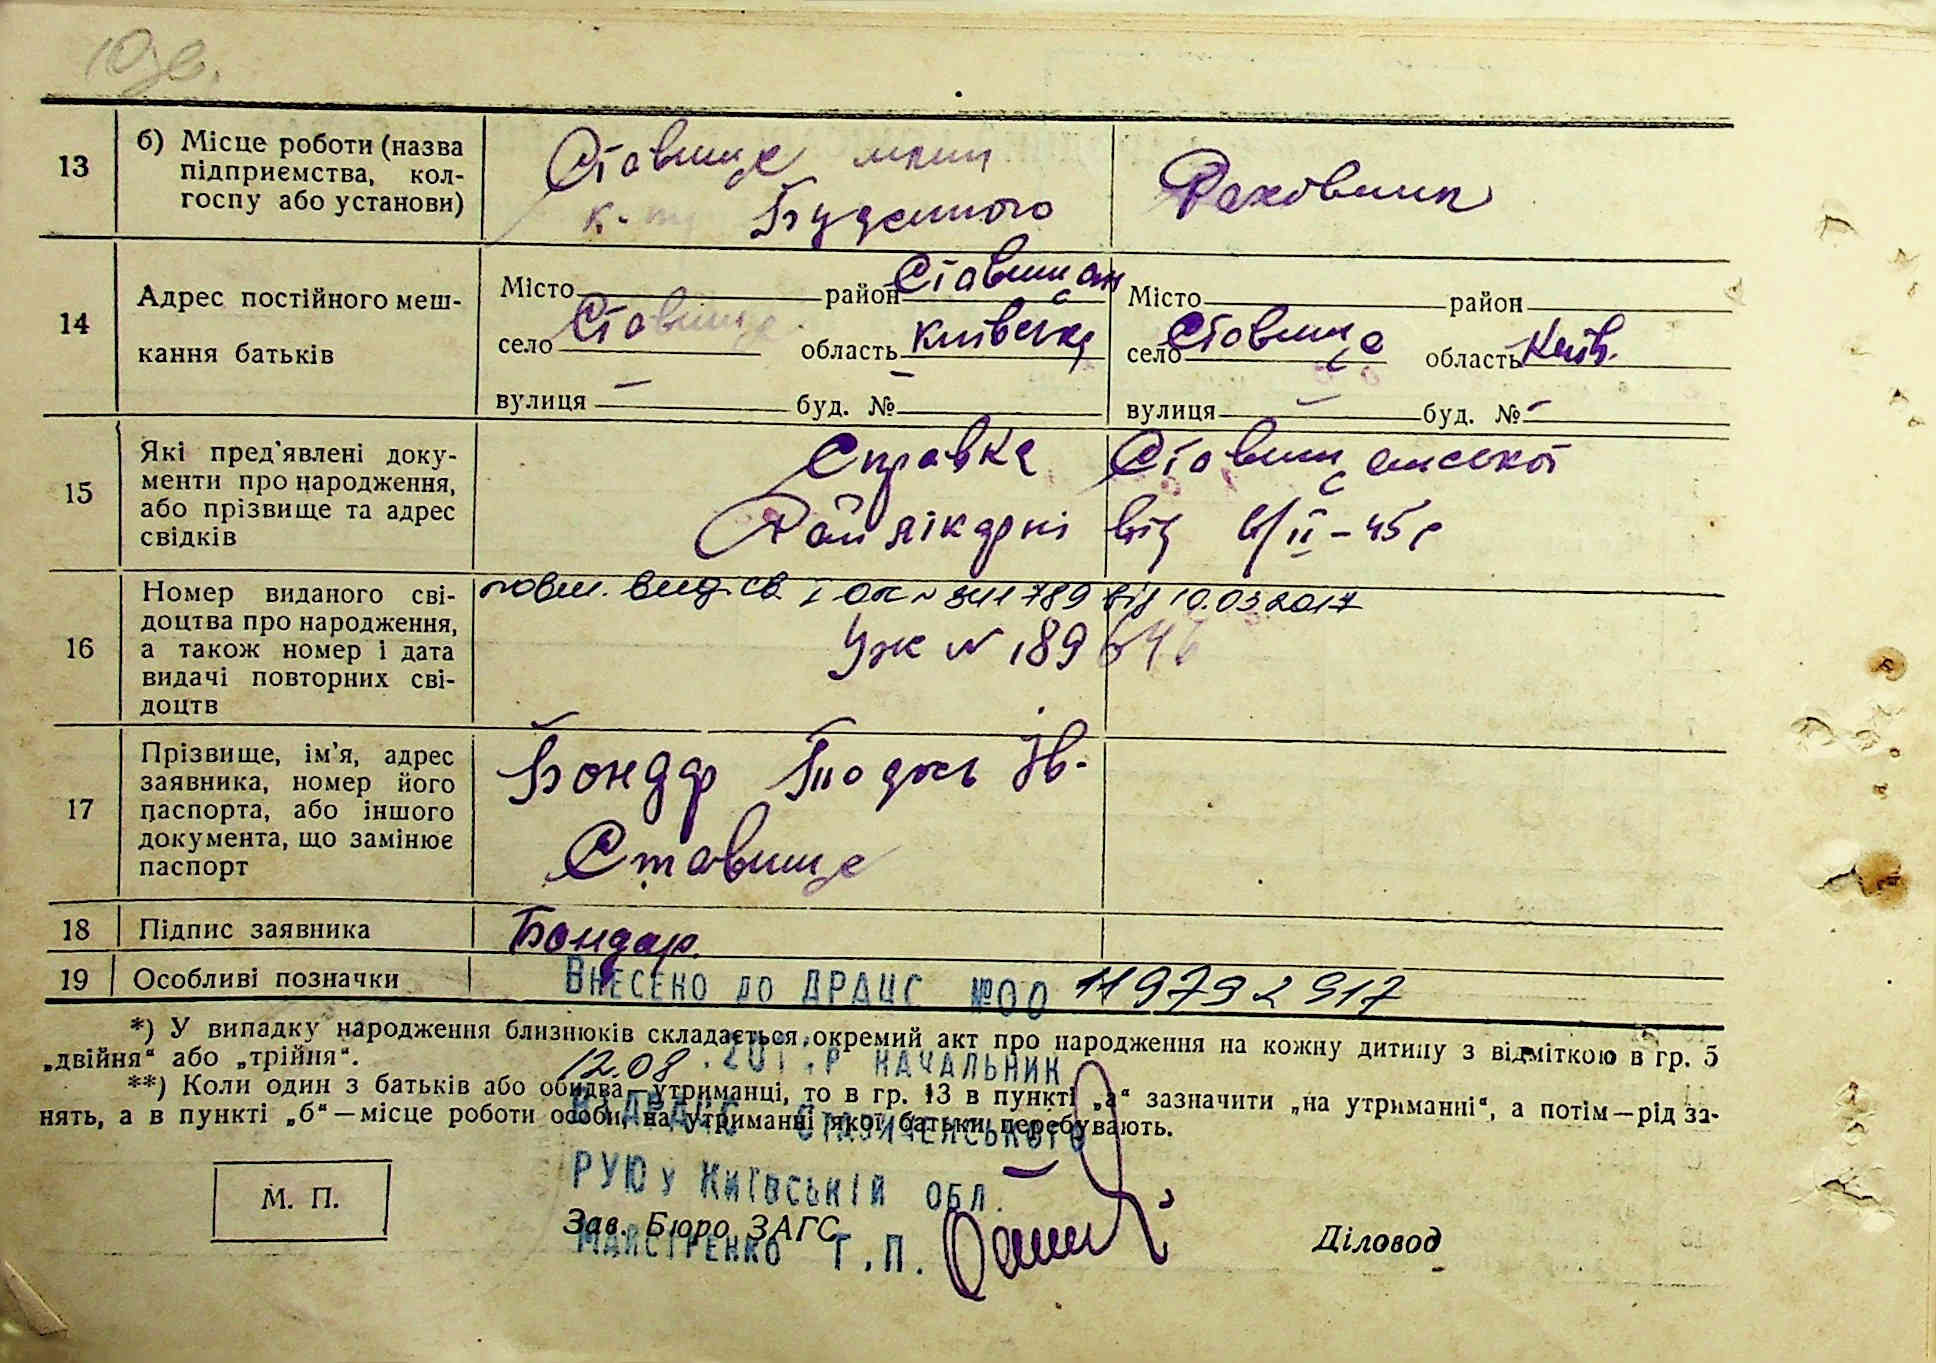 10 зв.
13
б) Місце роботи (назва
підприємства, кол-
госпу або установи)
Ставище
к-
Буденного
14
Адрес постійного меш-
кання батьків
Місто район Ставищан
село Ставище область Київська
вулиця – буд. № –
Місто район
село Ставище область Київ.
вулиця – буд. № –
15
Які пред'явлені доку-
менти про народження,
або прізвище та адрес
свідків
Справка Ставищанської
Рай лікарні від 4/II – 45 р
16
Номер виданого сві-
доцтва про народження,
а також номер і дата
видачі повторних сві-
доцтв
повт. вид. св. І-ОК № 341789 від 10.03.2017
УЖ № 189646
17
Прізвище, ім'я, адрес
заявника, номер його
паспорта, або іншого
документа, що замінює
паспорт
Бондар Тодось Ів.
Ставище
18
Підпис заявника
Бондар.
19
Особливі позначки
ВНЕСЕНО ДО ДРАЦС №00 119792917
*) У випадку народження близнюків складається окремий акт про народження на кожну дитину з відміткою в гр. 5
„двійня“ або „трійня“.
12.08 .201 .Р НАЧАЛЬНИК
**) Коли один з батьків або обидва—утриманці, то в гр. 13 в пункті „а“ зазначити „на утриманні“, а потім—рід за-
нять, а в пункті „б“ — місце роботи особи, на утриманні якої батьки перебувають.
ДРАЦС СТАВИЩЕНСЬКОГО
РУЮ У КИЇВСЬКІЙ ОБЛ.
М. П.
Зав. Бюро ЗАГС
МАЙСТРЕНКО Т.П.
Діловод